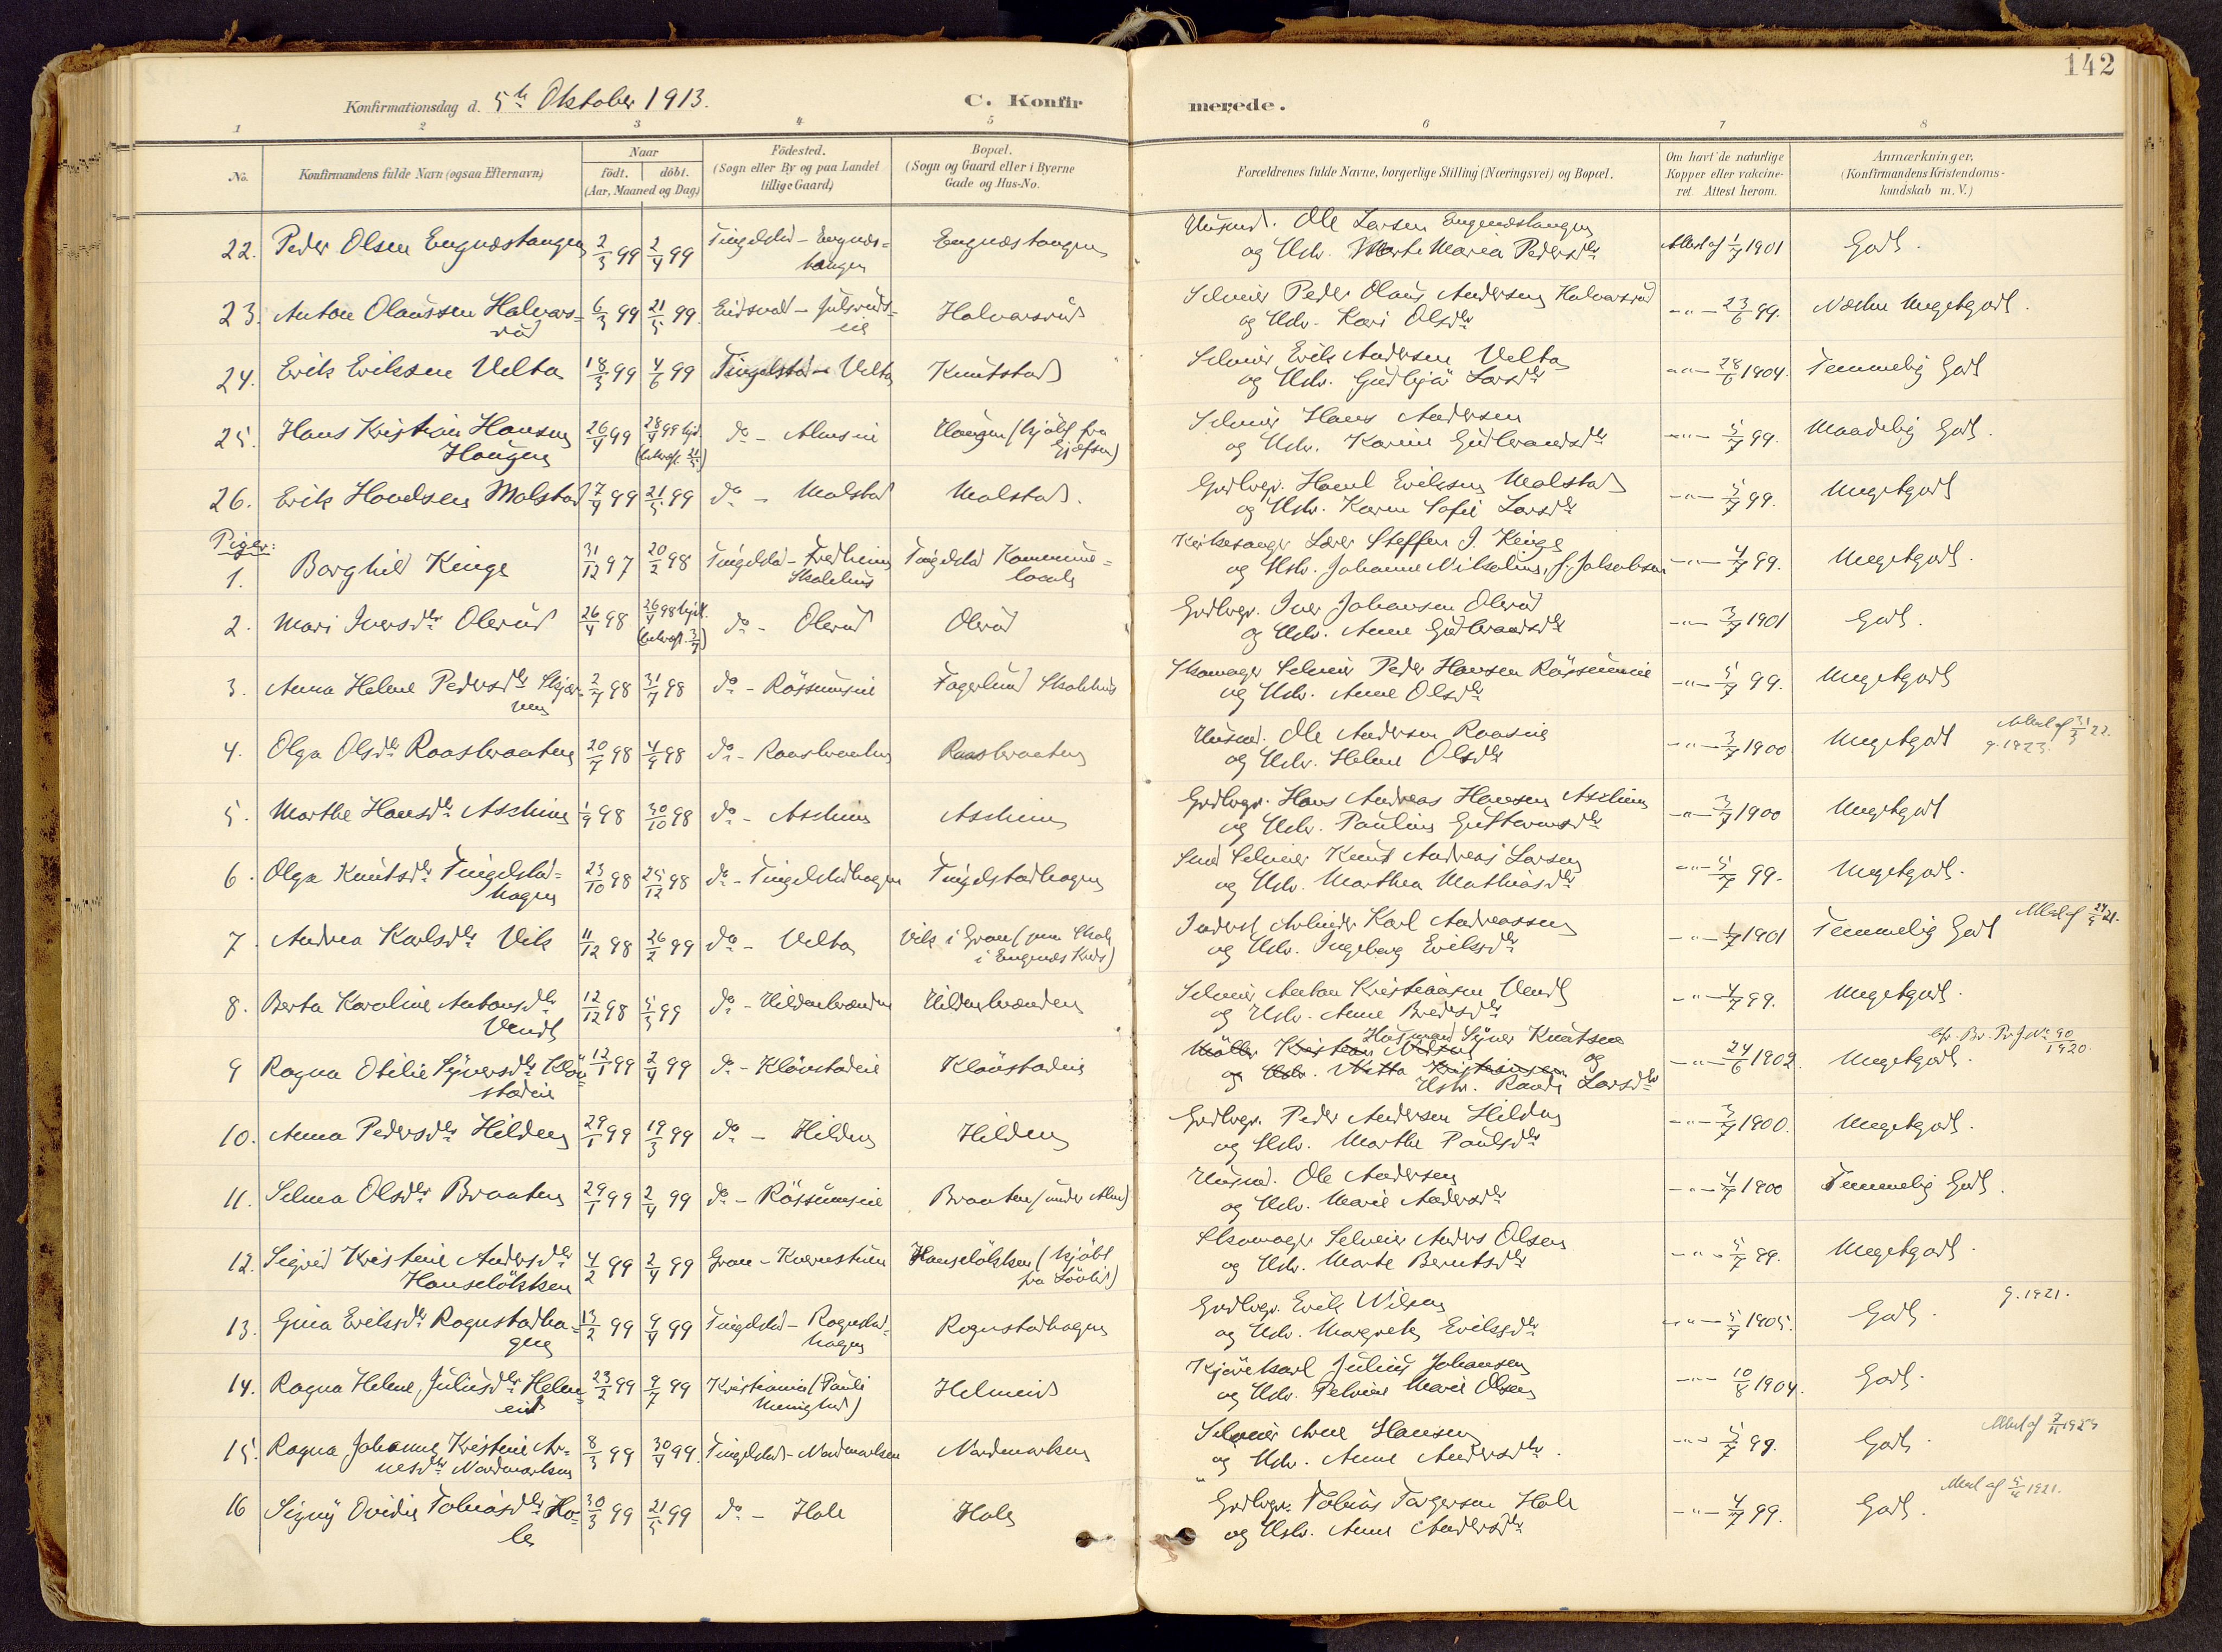 142
Konfirmationsdag d. 5te Oktober 1913.
C. Konfirmerede.
1 2 3 4 5 6 7 8
No.
Konfirmandens fulde Navn (ogsaa Efternavn)
Naar
födt. döbt.
(Aar, Maaned og Dag)
Födested.
(Sogn eller By og paa Landet
tillige Gaard)
Bopæl.
(Sogn og Gaard eller i Byerne
Gade og Hus-No.
Forældrenes fulde Navne, borgerlige Stilling (Næringsvei) og Bopæl.
Om havt de naturlige
Kopper eller vakcine-
ret. Attest herom.
Anmærkninger.
(Konfirmandens Kristendoms-
kundskab m. V.)
22. Peder Olsen Engnæstangen 2/3 99 2/4 99 Tingelstad - Engnæs=
tangen Engnæstangen
Husmd. Ole Larsen Engnæstangen
og Hstr. Marte Maria Pedersdtr Attest af 1/7 1901 Godt.
23. Anton Olaussen Halvars=
rud 6/3 99 21/5 99. Eidsvold - Julsruds=
eie Halvarsrud
Selveier Peder Olaus Andersen Halvarsrud
og Hstr. Kari Olsdtr -"- 23/6 99. Næsten Megetgodt.
24. Erik Eriksen Velta 18/3 99 4/6 99 Tingelstad - Velta Knutstad
Selveier Erik Andersen Velta
og Hstr. Gudbjør Larsdtr -"- 28/6 1904. Temmelig Godt
25. Hans Kristian Hansen
Haugen 26/4 99 28/4 99 hjd.
(bekræft. 21/5) do - Almseie Haugen (kjöbt fra
Gjefsen)
Selveier Hans Andersen
og Hstr. Karine Gudbrandsdtr -"- 5/7 99. Maadelig Godt.
26. Erik Havelsen Molstad 7/4 99 21/5 99 do - Molstad Molstad.
Grdbrgr. Havel Eriksen Molstad
og Hstr. Karen Sofie Larsdtr -"- 5/7 99. Megetgodt
Piger:
1. Borghild Kinge 31/12 97 20/2 98 Tingelstad - Fredheim
Skolehus Tingelstad Kommune=
locale
Kirkesanger Lærer Steffen J. Kinge
og Hstr. Johanne Nikoline, f. Jakobsen -"- 4/7 99. Megetgodt.
2. Mari Iversdtr Olerud 26/4 98 26/4 98 hjd.
(bekræft. 3/7) do - Olerud Olerud
Grdbrgr. Iver Johansen Olerud
og Hstr. Anne Gudbrandsdtr -"- 3/7 1901 Godt.
3. Anna Helene Pedersdtr Skjær=
ven 2/7 98 31/7 98 do - Røssumeie Fagerlund Skolehus
Skomager Selveier Peder Hansen Røssumeie
og Hstr. Anne Olsdtr -"- 5/7 99. Megetgodt
4. Olga Olsdtr Raasbraaten 20/7 98 4/9 98 do - Raasbraaten Raasbraaten
Husmd. Ole Andersen Raaseie
og Hstr. Helene Olsdtr -"- 3/7 1900 Megetgodt Attest af 31/3 22.
g. 1923.
5. Marthe Hansdtr Aschim 1/9 98 30/10 98 do - Aschim Aschim
Grdbrgr. Hans Andreas Hansen Aschim
og Hstr. Pauline Guttormsdtr -"- 3/7 1900 Megetgodt
6. Olga Knutsdtr Tingelstad=
hagen 23/10 98 25/12 98 do - Tingelstadhagen Tingelstadhagen
Smed Selveier Knut Andreas Larsen
og Hstr. Marthea Mathiasdtr -"- 5/7 99. Megetgodt.
7. Andrea Karlsdtr Vik 11/12 98 26/2 99 do - Velta Vik i Gran (
i Engnæs Kreds)
Inderst Arbeider Karl Andreassen
og Hstr. Ingeborg Eriksdtr -"- 1/7 1901 Temmelig Godt Attest af 24/5 21.
8. Berta Karoline Antonsdtr
Vendt 12/12 98 5/3 99 do - Hildenbrænden Hildenbrænden
Selveier Anton Kristiansen Vendt
og Hstr. Anne Bredesdtr -"- 4/7 99. Megetgodt.
9 Ragna Otilie Syversdtr Kløv=
stadeie 12/1 99 2/4 99 do - Klövstadeie Klövstadeie
Husmand Syver Knutsen
Møller Kristian Nilsen og
og Hstr. Netta Kristiansen Hstr. Randi Larsdtr -"- 24/6 1902. Megetgodt. cfr. Br. Pr. J. No 90/1920.
10. Anna Pedersdtr Hilden 29/1 99 19/3 99 do - Hilden Hilden
Grdbrgr. Peder Andersen Hilden
og Hstr. Marthe Paulsdtr -"- 3/7 1900. Megetgodt.
11. Selma Olsdtr Braaten 29/1 99 2/4 99 do - Røssumseie Braaten (under Alm)
Husmd. Ole Andersen
og Hstr. Marie Andersdtr -"- 4/7 1900 Temmelig Godt.
12. Sigrid Kristine Andersdtr
Hanselökken 4/2 99 2/4 99 Gran - Kvernstuen Hanselökken (kjöbt
fra Lövlid)
Skomager Selveier Anders Olsen
og Hstr. Marte Berntsdtr -"- 5/7 99. Megetgodt.
13. Gina Eriksdtr Rognstadha=
gen 13/2 99 9/4 99 Tingelstad - Rognstad=
hagen Rognstadhagen
Grdbrgr. Erik Nilsen
og Hstr. Margrete Eriksdtr -"- 5/7 1905. Godt. g. 1921.
14. Ragna Helene Juliusdtr Helme=
eid 23/2 99 9/7 99 Kristiania (Pauli
Menighed) Helmeid
Kjörekarl Julius Johansen
og Hstr. Petrine Marie Olsen -"- 10/8 1904. Godt.
15. Ragna Johanne Kristine Ar=
nesdtr Nordmarken 8/3 99 30/4 99. Tingelstad - Nordmarken Nordmarken
Selveier Arne Hansen
og Hstr. Anne Andersdtr. -"- 5/7 99. Godt.
16 Signy Ovidie Tobiasdtr Ho=
le 30/3 99 21/5 99 do - Hole Hole
Grdbrgr. Tobias Torgersen Hole
og Hstr. Anne Andersdtr -"- 4/7 99. Godt. Attest af 5/4 1921.